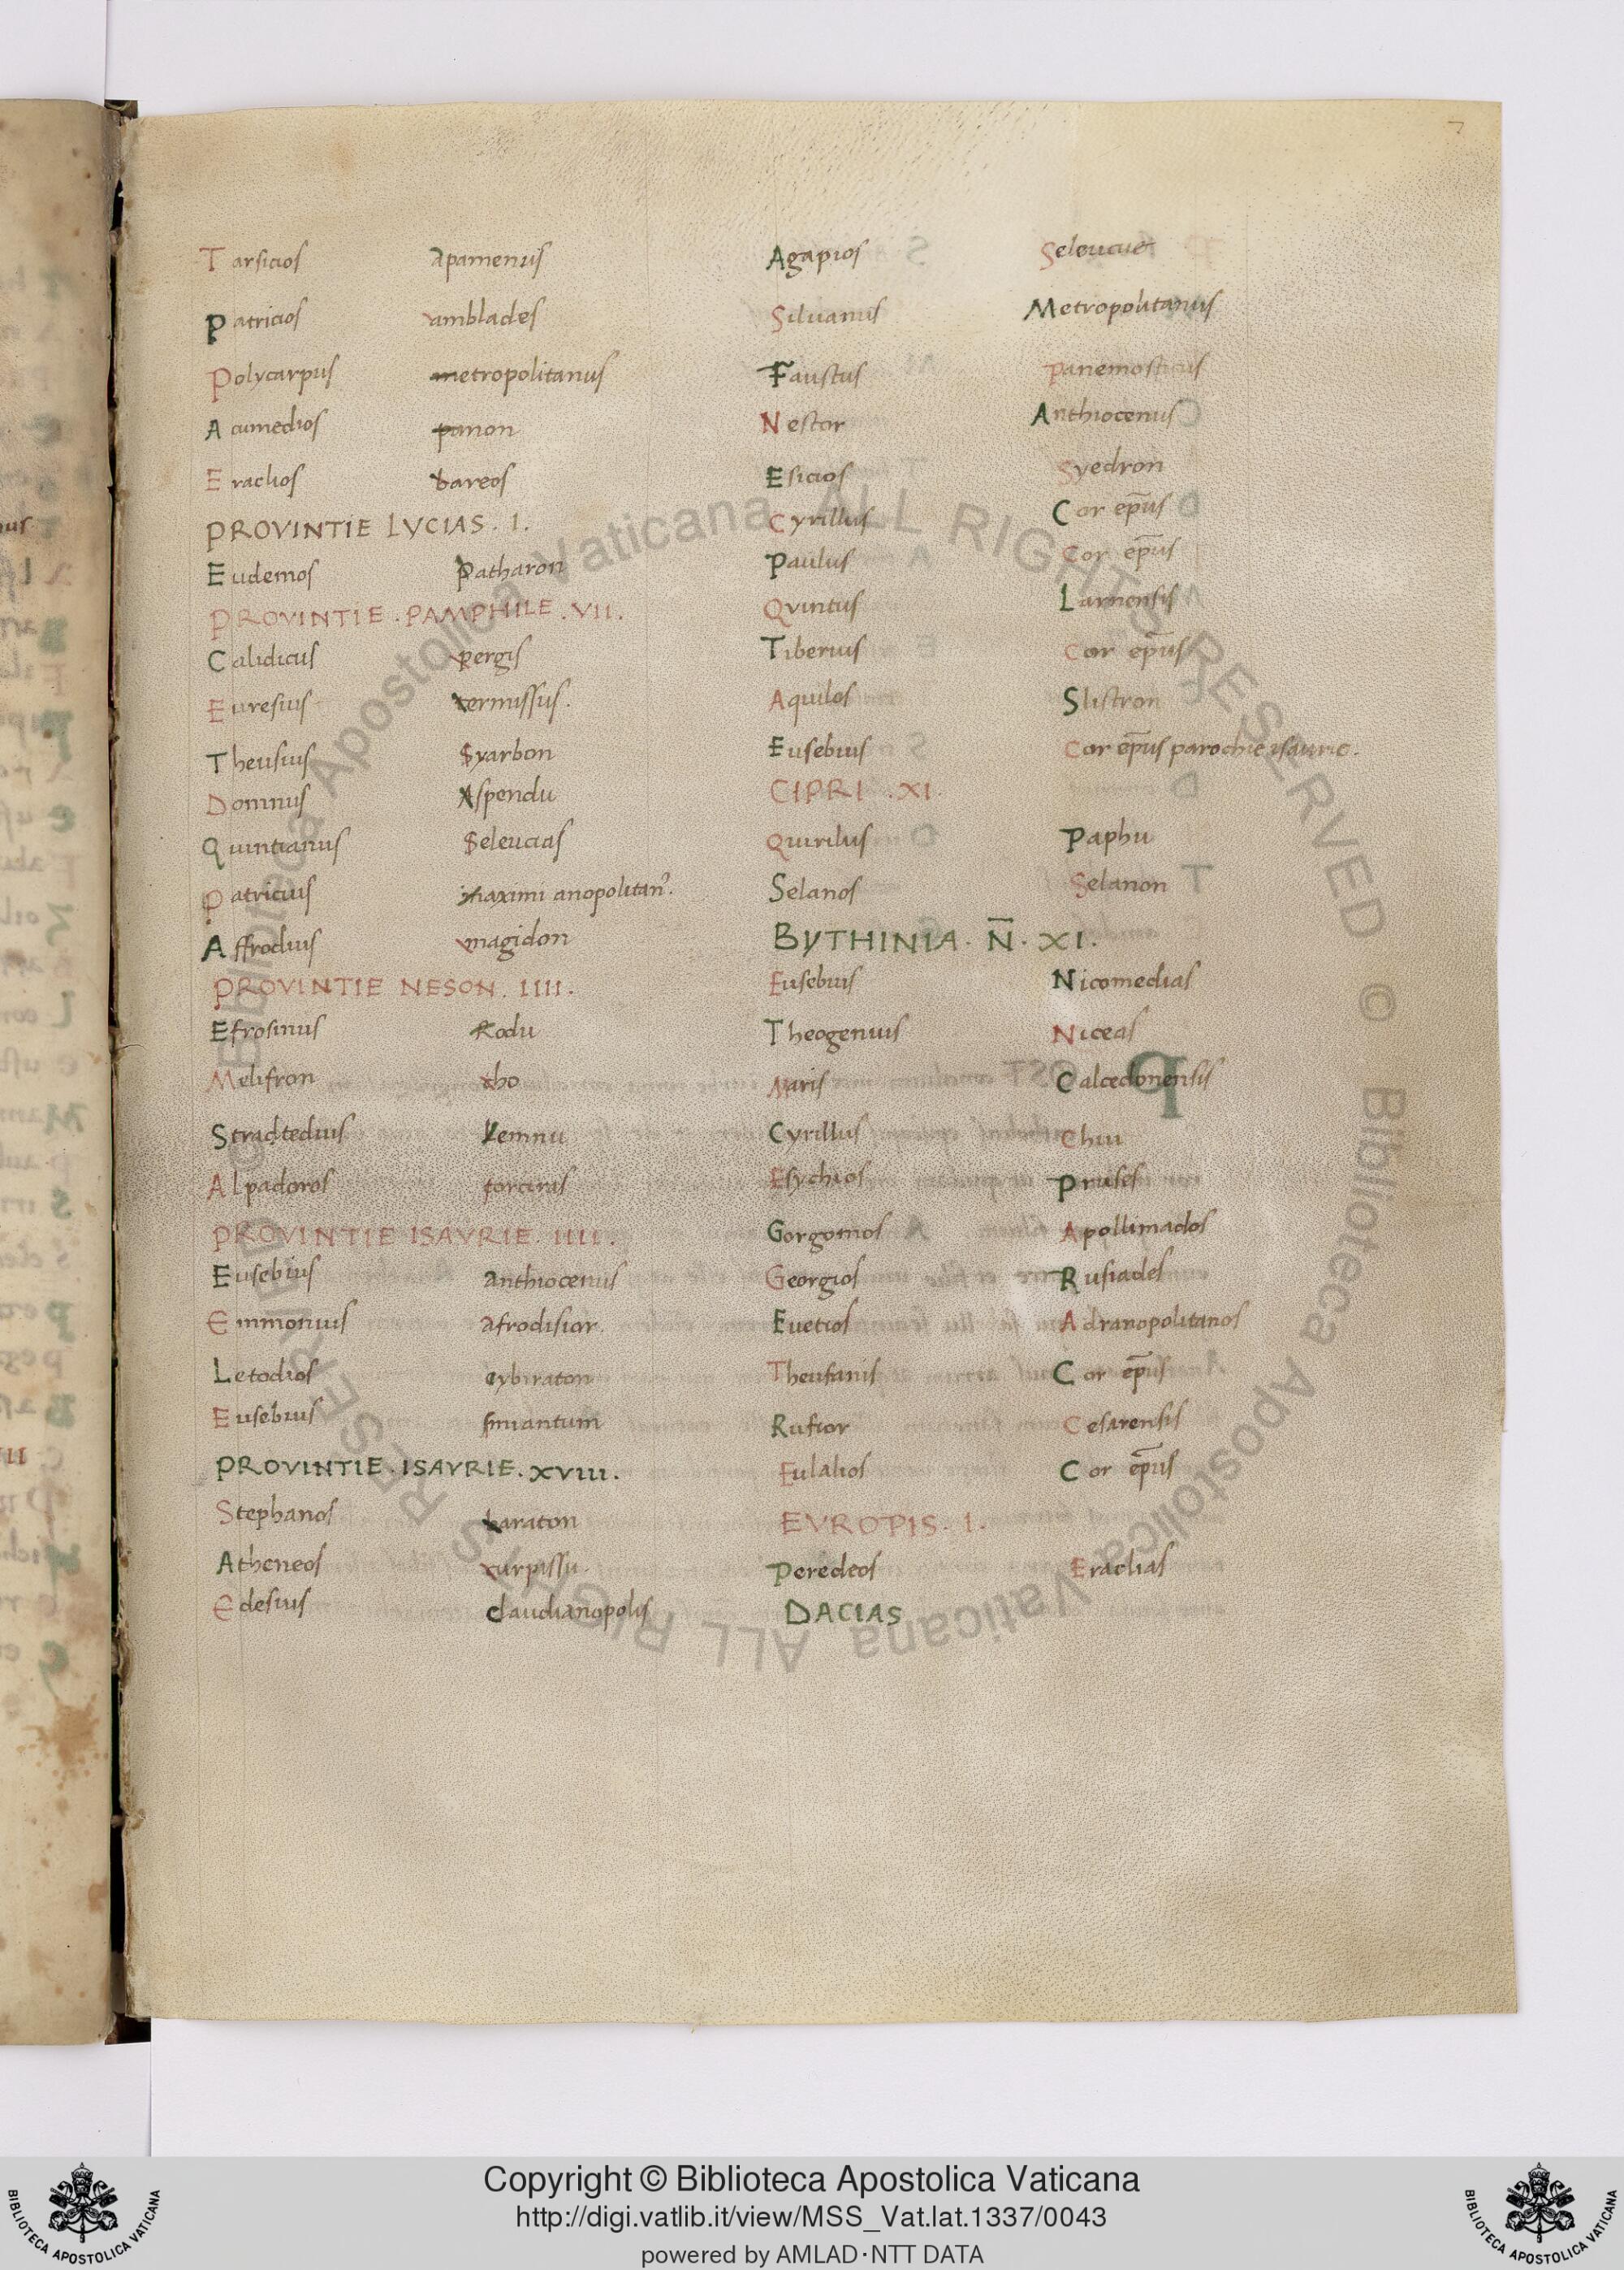 7
Tarsicios Apamenus
Patricios amblades
Polycarpus metropolitanus
Acumedios panon
Eraclios bareos
PROVINTIE LYCIAS. I.
Eudemos Patharon
PROVINTIE. PAMPHILE. VII.
Calidicus pergis
Euresius termissus.
Theusius Syarbon
Domnus Aspendu
Quintianus Seleucias
Patricius maximi anopolitan᾿.
Affrodius magidon
PROVINTIE NESON. IIII.
Efrosinus Rodu
Melifron cho
Stradtedius Lemnu
Alpadoros corciras
PROVINTIE ISAVRIE. IIII.
Eusebius anthiocenus
Emmonius Afrodisior.
Letodios cybiraton
Eusebius smiantum
PROVINTIE. ISAVRIE. XVIII.
Stephanos baraton
Atheneos
Edesius claudianopolis
Agapios Seleucie
Siluanus Metropolitanus
Faustus Panemosticus
Nestor Anthiocenus
Esicios Syedron
Cyrillus Cor ep̄us
Paulus Cor ep̄us
Quintus Larnensis
Tiberius Cor ep̄us
Aquilos Slistron
Eusebius Cor ep̄us parochie isaurie.
CIPRI. XI.
Quirilus Paphu
Selanos Selanon
BYTHINIA. N̄. XI.
Eusebius Nicomedias
Theogenius Niceas
Maris Calcedonensis
Cyrillus Chiu
Esychios Pruses
Gorgomos Apollimados
Georgios Rusiades
Euetios Adranopolitanos
Theufanis Cor ep̄us
Rufior Cesarensis
Eulalios Cor ep̄us
EVROPIS. I.
Peredeos Eraclias
DACIAS
© Biblioteca Apostolica Vaticana ALL RIGHTS RESERVED © Biblioteca Apostolica Vaticana ALL RIGHTS RESERVED
Copyright © Biblioteca Apostolica Vaticana
http://digi.vatlib.it/view/MSS_Vat.lat.1337/0043
powered by AMLAD·NTT DATA
BIBLIOTECA APOSTOLICA VATICANA
BIBLIOTECA APOSTOLICA VATICANA